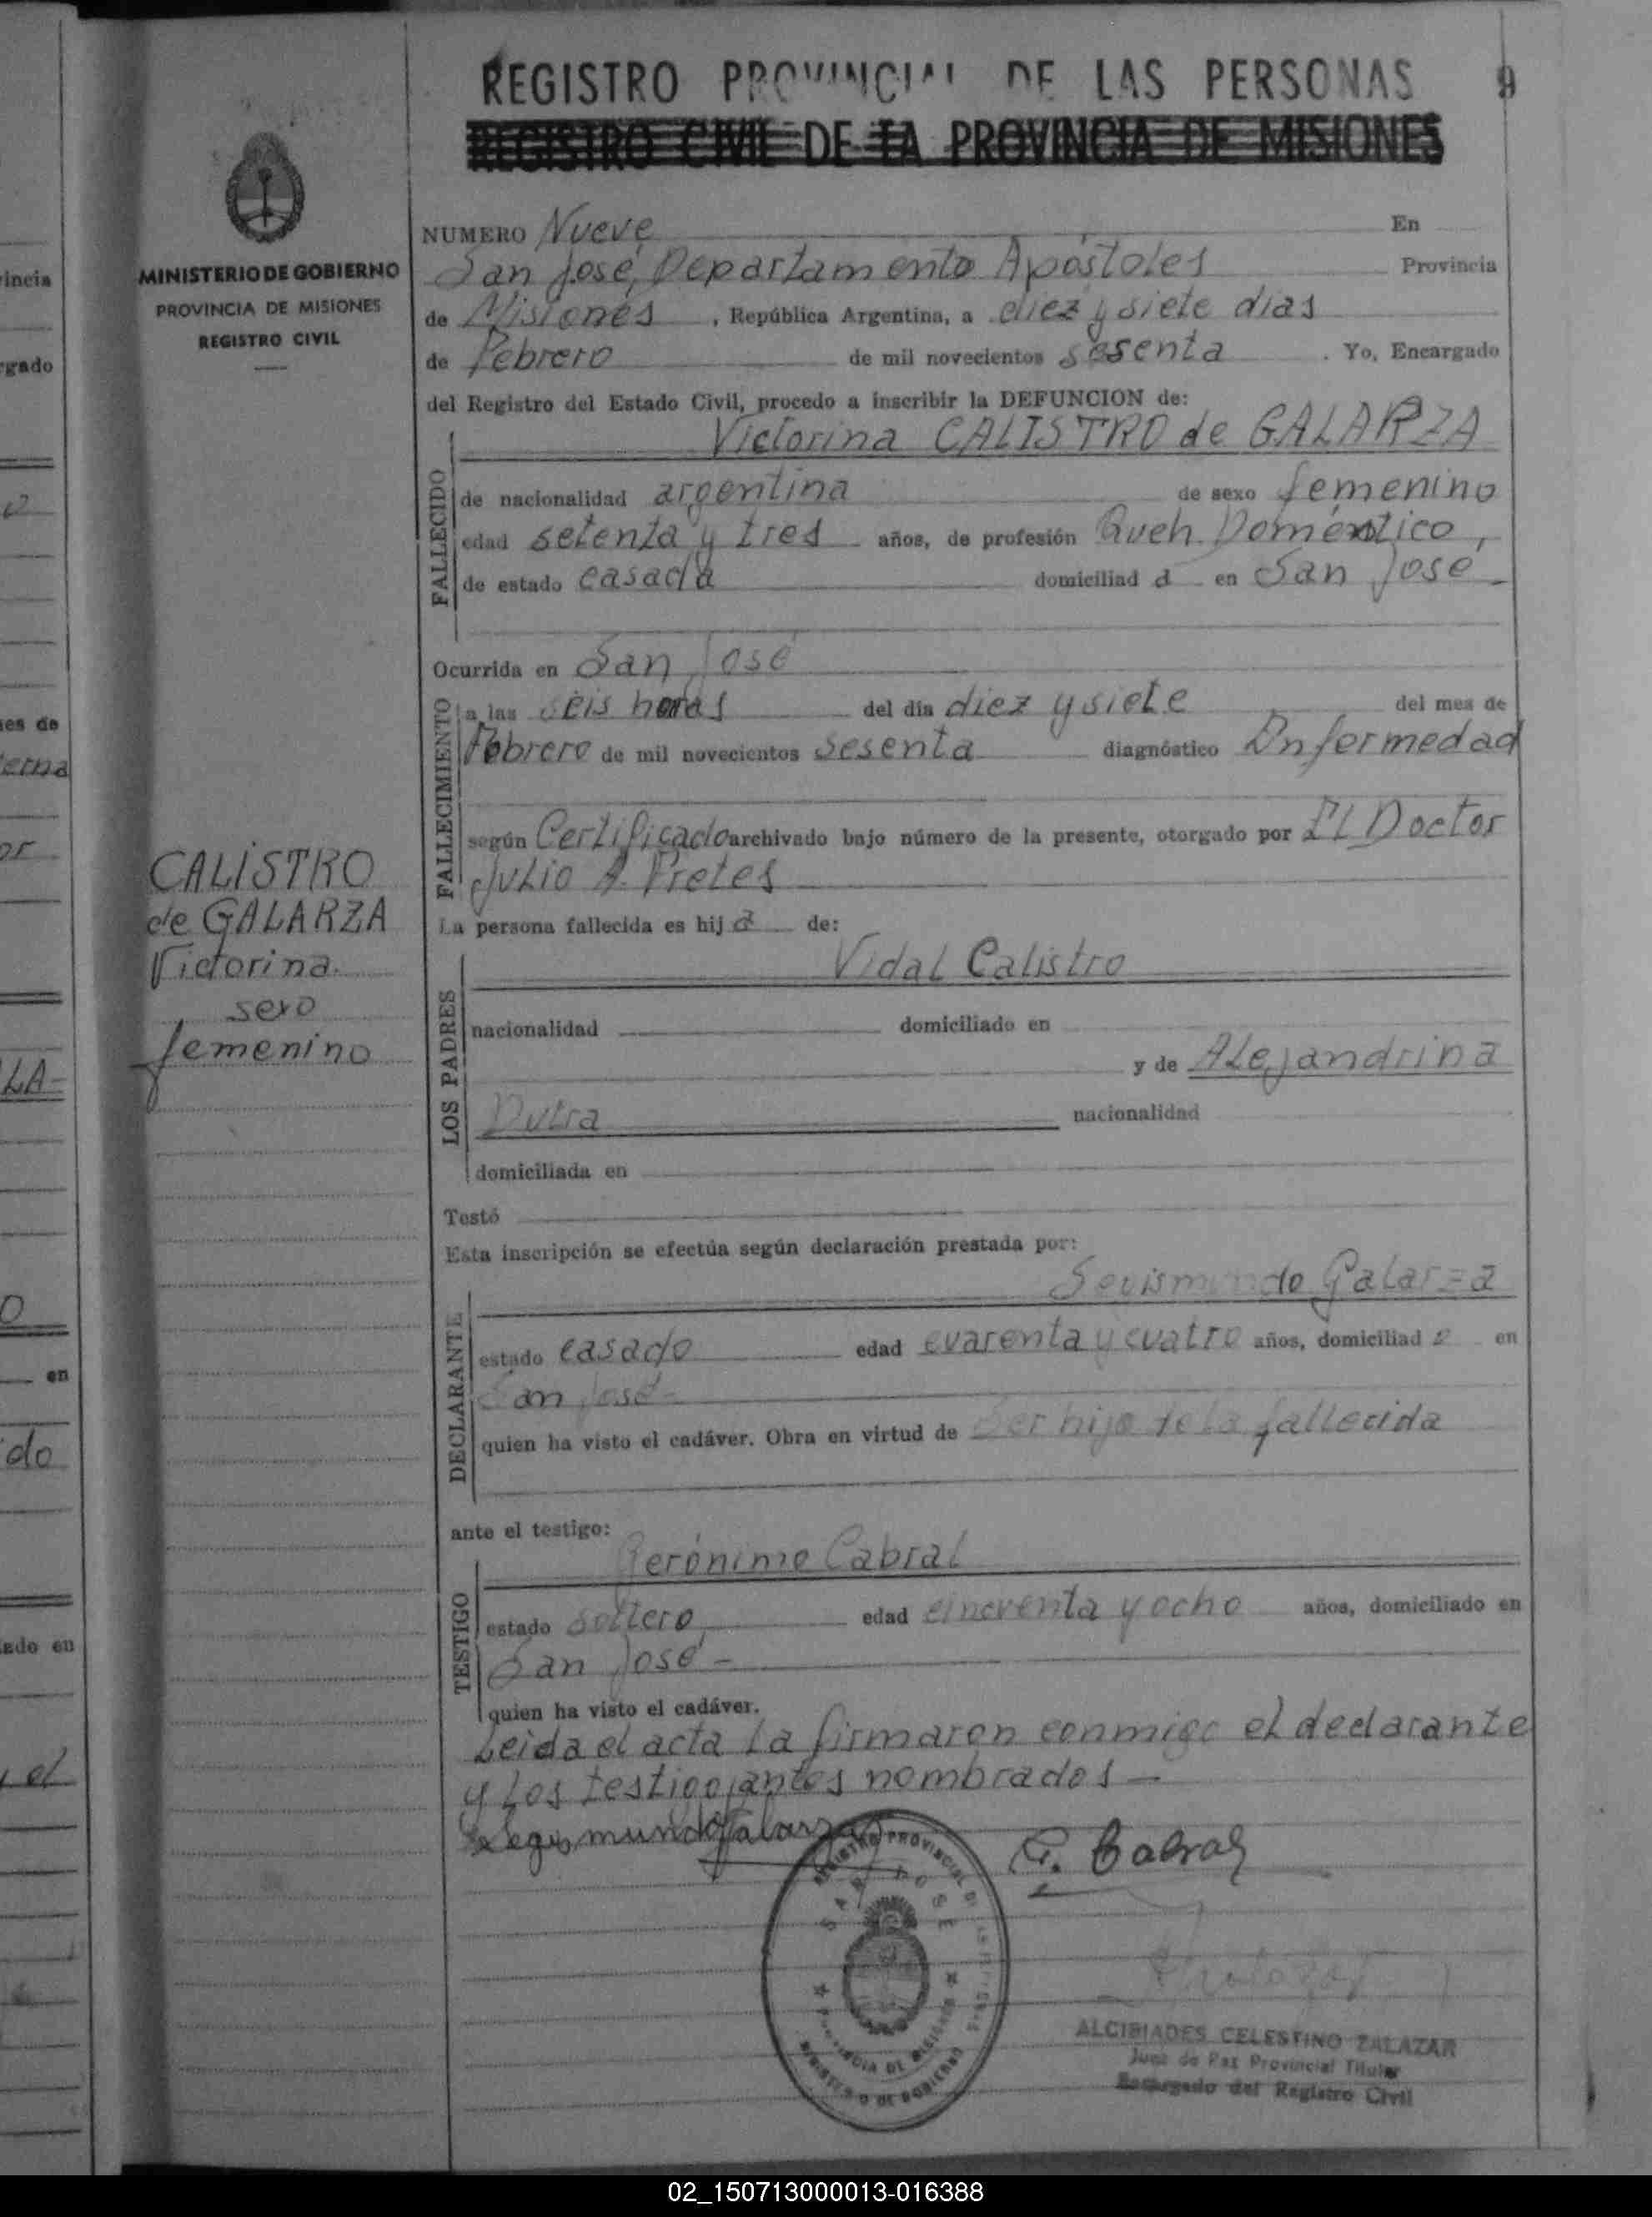 REGISTRO PROVINCIAL DE LAS PERSONAS 9
REGISTRO CIVIL DE LA PROVINCIA DE MISIONES
MINISTERIO DE GOBIERNO
PROVINCIA DE MISIONES
REGISTRO CIVIL
NUMERO Nueve En
San José, Departamento Apóstoles Provincia
de Misiones, República Argentina, a diez y siete dias
de Febrero de mil novecientos sesenta. Yo, Encargado
del Registro del Estado Civil, procedo a inscribir la DEFUNCION de:
Victorina CALISTRO de GALARZA
FALLECIDO
de nacionalidad argentina de sexo femenino
edad setenta y tres años, de profesión Queh. Doméstico,
de estado casada domiciliad a en San José
Ocurrida en San José
FALLECIMIENTO
a las seis horas del día diez y siete del mes de
Febrero de mil novecientos sesenta diagnóstico Enfermedad
según Certificado archivado bajo número de la presente, otorgado por El Doctor
Julio A. Pretes
CALISTRO
de GALARZA
Victorina
sexo
femenino
La persona fallecida es hij a de:
LOS PADRES
Vidal Calistro
nacionalidad domiciliado en
y de Alejandrina
Dutra nacionalidad
domiciliada en
Testó
Esta inscripción se efectúa según declaración prestada por:
DECLARANTE
Sevismundo Galarza
estado casado edad cuarenta y cuatro años, domiciliad o en
San José
quien ha visto el cadáver. Obra en virtud de Ser hijo de la fallecida
ante el testigo:
TESTIGO
Gerónimo Cabral
estado soltero, edad cincuenta y ocho años, domiciliado en
San José -
quien ha visto el cadáver.
Leida el acta la firmaron conmigo el declarante
y los nombrados —
Segismundo Galarza
G. Cabral
REGISTRO PROVINCIAL DE LAS PERSONAS
SAN JOSE
PROVINCIA DE MISIONES
MINISTERIO DE GOBIERNO
ALCIBIADES CELESTINO ZALAZAR
Juez de Paz Provincial Titular
Encargado del Registro Civil
02_150713000013-016388